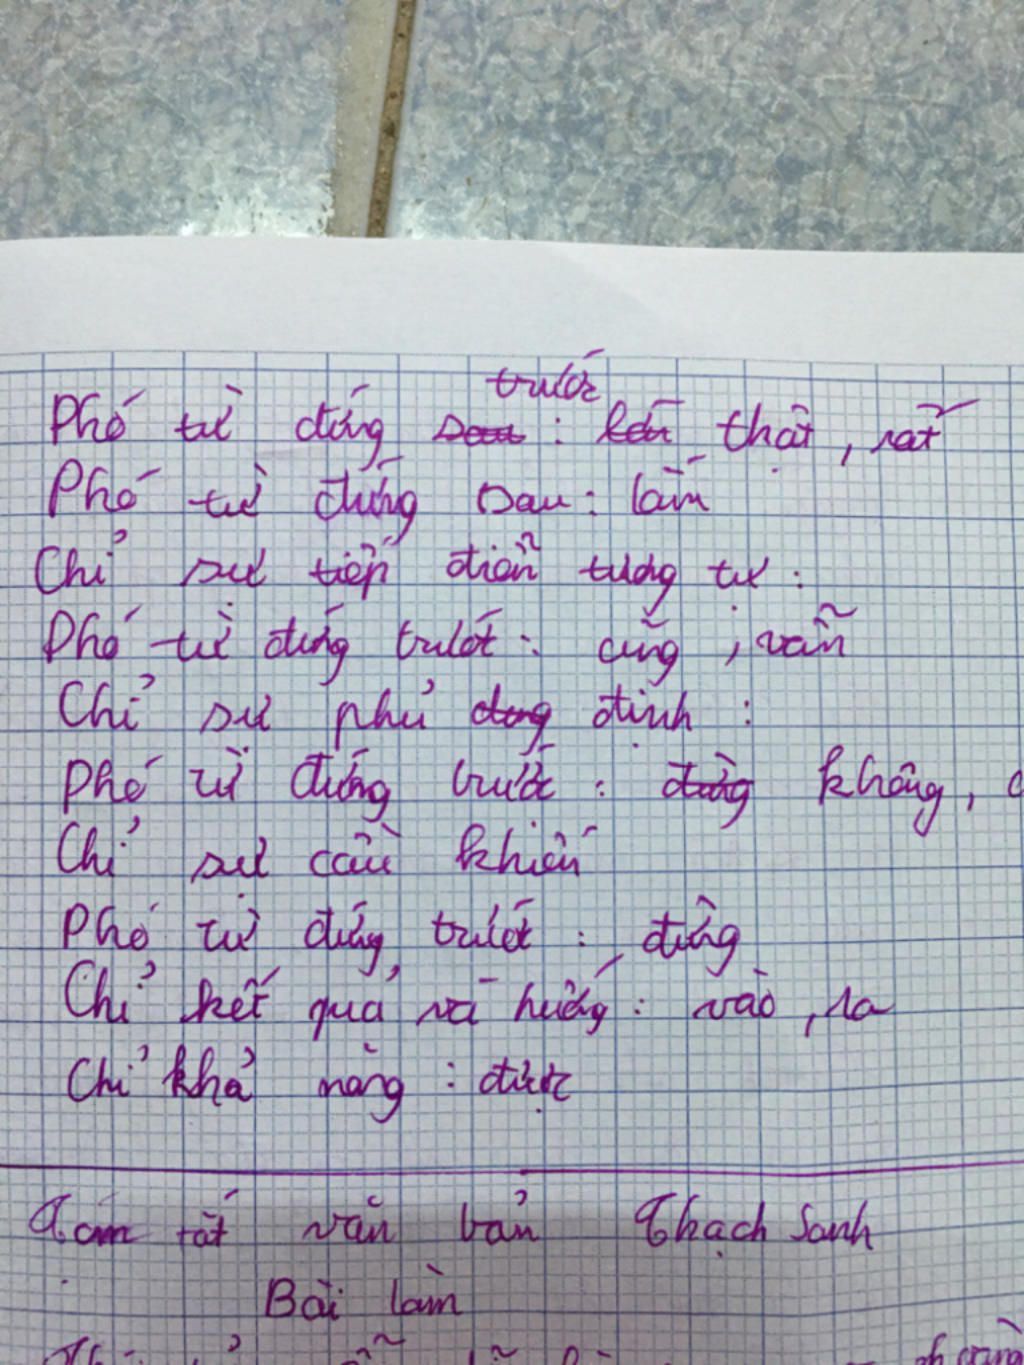 trước
Phó từ đứng sau : lắm thật , rất
Phó từ đứng sau : lắm
Chỉ sự tiếp diễn tương tự :
Phó từ đứng trước : cũng , vẫn
Chỉ sự phủ định :
Phó từ đứng trước : đừng không,
Chỉ sự cầu khiến
Phó từ đứng trước : đừng
Chỉ kết quả và hướng : vào , ra
Chỉ khả năng : được
Tóm tắt văn bản Thạch Sanh
Bài làm